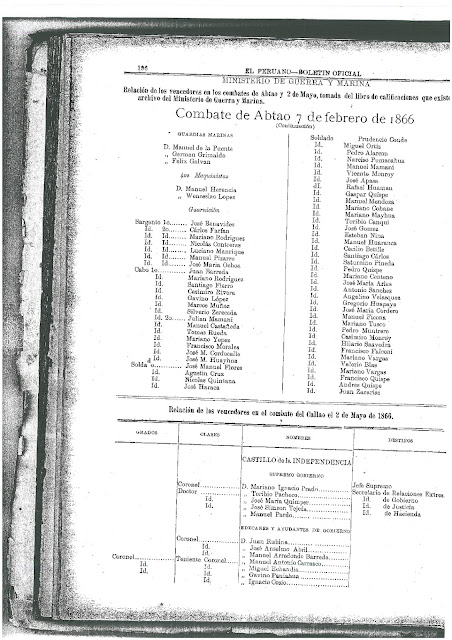 196
EL PERUANO—BOLETIN OFICIAL
MINISTERIO DE GUERRA Y MARINA
Relación de los vencedores en los combates de Abtao y 2 de Mayo, tomada del libro de calificaciones que existe
archivo del Ministerio de Guerra y Marina.
Combate de Abtao 7 de febrero de 1866
(Continuación)
GUARDIAS MARINAS
D. Manuel de la Puente
„ German Grimaldo
„ Felix Galvan
4os Maquinistas
D. Manuel Herencia
„ Wenceslao Lopez
Guarnición
Sargento 1o...... José Benavides
Id. 2o...... Cárlos Farfan
Id. Id...... Mariano Rodrigues
Id. Id...... Nicolás Contreras
Id. Id...... Luciano Manrique
Id. Id...... Manuel Pizarro
Id. Id...... José María Ochoa
Cabo 1o...... Juan Barreda
Id. Mariano Rodriguez
Id. Santiago Fierro
Id. Casimiro Rivera
Id. Gavino López
Id. Marcos Muñoz
Id. Silverio Zereceda
Id. 2o...... Julian Mamani
Id. Manuel Castañeda
Id. Tomas Rueda
Id. Mariano Yepez
Id. Francisco Morales
Id. José M. Cordocalle
Id. José M. Huayhua
Soldado...... José Manuel Flores
Id. Agustin Cruz
Id. Nicolas Quintana
Id. José Haraca
Soldado Prudencio Conde
Id. Miguel Ortiz
Id. Pedro Alarcon
Id. Narciso Pumacahua
Id. Manuel Mamani
Id. Vicente Monroy
Id. José Apasa
dI. Rafael Huaman
Id. Gaspar Quispe
Id. Manuel Mendoza
Id. Mariano Cobane
Id. Mariano Mayhua
Id. Toribio Canqui
Id. José Gomez
Id. Esteban Nina
Id. Manuel Huaranca
Id. Cecilio Botille
Id. Santiago Cárlos
Id. Saturnino Pineda
Id. Pedro Quispe
Id. Mariano Centeno
Id. José María Arias
Id. Antonio Sanchez
Id. Angelino Velasquez
Id. Gregorio Huapaya
Id. José María Cordero
Id. Manuel Ficona
Id. Mariano Tusco
Id. Pedro Montrem
Id. Casimiro Monroy
Id. Hilario Saavedra
Id. Francisco Falconi
Id. Mariano Vargas
Id. Valerio Blas
Id. Mariano Vargas
Id. Francisco Quispe
Id. Andres Quispe
Id. Juan Zacarias
Relación de los vencedores en el combate del Callao el 2 de Mayo de 1866.
GRADOS CLASES NOMBRES DESTINOS
CASTILLO de la INDEPENDENCIA
SUPREMO GOBIERNO
Coronel...... D. Mariano Ignacio Prado...... Jefe Supremo
Doctor...... „ Toribio Pacheco...... Secretario de Relaciones Extros.
Id. „ José María Quimper...... Id. de Gobierno
Id. „ José Simeon Tejeda...... Id. de Justicia
„ Manuel Pardo...... Id. de Hacienda
EDECANES Y AYUDANTES DE GOBIERNO
Coronel...... D. Juan Rubina......
Id. „ José Anselmo Abril......
Id. „ Manuel Arredondo Barreda......
Coronel...... Teniente Coronel...... „ Manuel Antonio Carrasco......
Id. Id. „ Miguel Echandía......
Id. Id. „ Gavino Paniahua......
Id. Id. „ Ignacio Cosio......